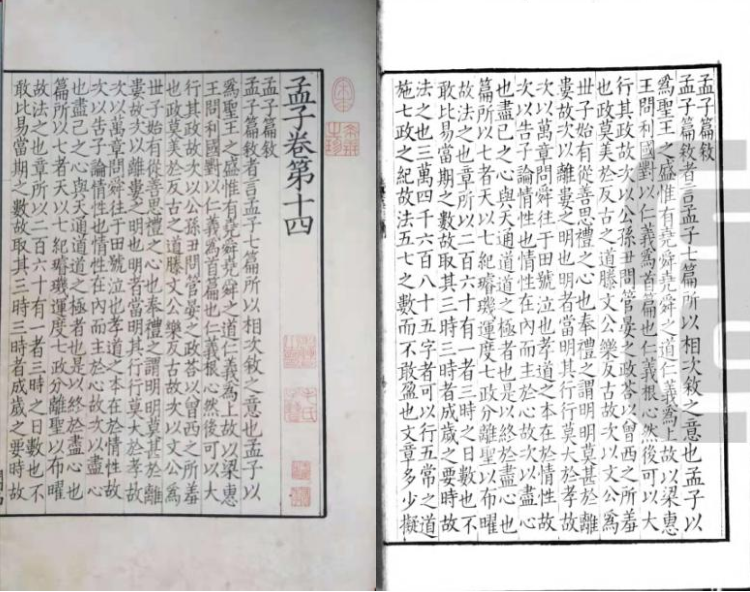 孟子卷第十四
孟子篇敘
孟子篇敘者言孟子七篇所以相次敘之意也孟子以
為聖王之盛惟有堯舜堯舜之道仁義為上故以梁惠
王問利國對以仁義為首篇也仁義根心然後可以大
行其政故次以公孫丑問管晏之政荅以曾西之所羞
也政莫美於反古之道滕文公樂反古故次以文公為
丗子始有從善思禮之心也奉禮之謂明明莫甚於離
婁故次以離婁之明也明者當明其行行莫大於孝故
次以萬章問舜往于田號泣也孝道之本在於情性故
次以告子論情性也情性在內而主於心故次以盡心
也盡己之心與天通道道之極者也是以終於盡心也
篇所以七者天以七紀璿璣運度七政分離聖以布曜
故法之也章所以二百六十有一者三時之日數也不
敢比易當期之數故取其三時三時者成歲之要時故
孟子篇敘
孟子篇敘者言孟子七篇所以相次敘之意也孟子以
為聖王之盛惟有堯舜堯舜之道仁義為上故以梁惠
王問利國對以仁義為首篇也仁義根心然後可以大
行其政故次以公孫丑問管晏之政荅以曾西之所羞
也政莫美於反古之道滕文公樂反古故次以文公為
丗子始有從善思禮之心也奉禮之謂明明莫甚於離
婁故次以離婁之明也明者當明其行行莫大於孝故
次以萬章問舜往于田號泣也孝道之本在於情性故
次以告子論情性也情性在內而主於心故次以盡心
也盡己之心與天通道道之極者也是以終於盡心也
篇所以七者天以七紀璿璣運度七政分離聖以布曜
故法之也章所以二百六十有一者三時之日數也不
敢比易當期之數故取其三時三時者成歲之要時故
法之也三萬四千六百八十五字者可以行五常之道
施七政之紀故法五七之數而不敢盈也文章多少擬